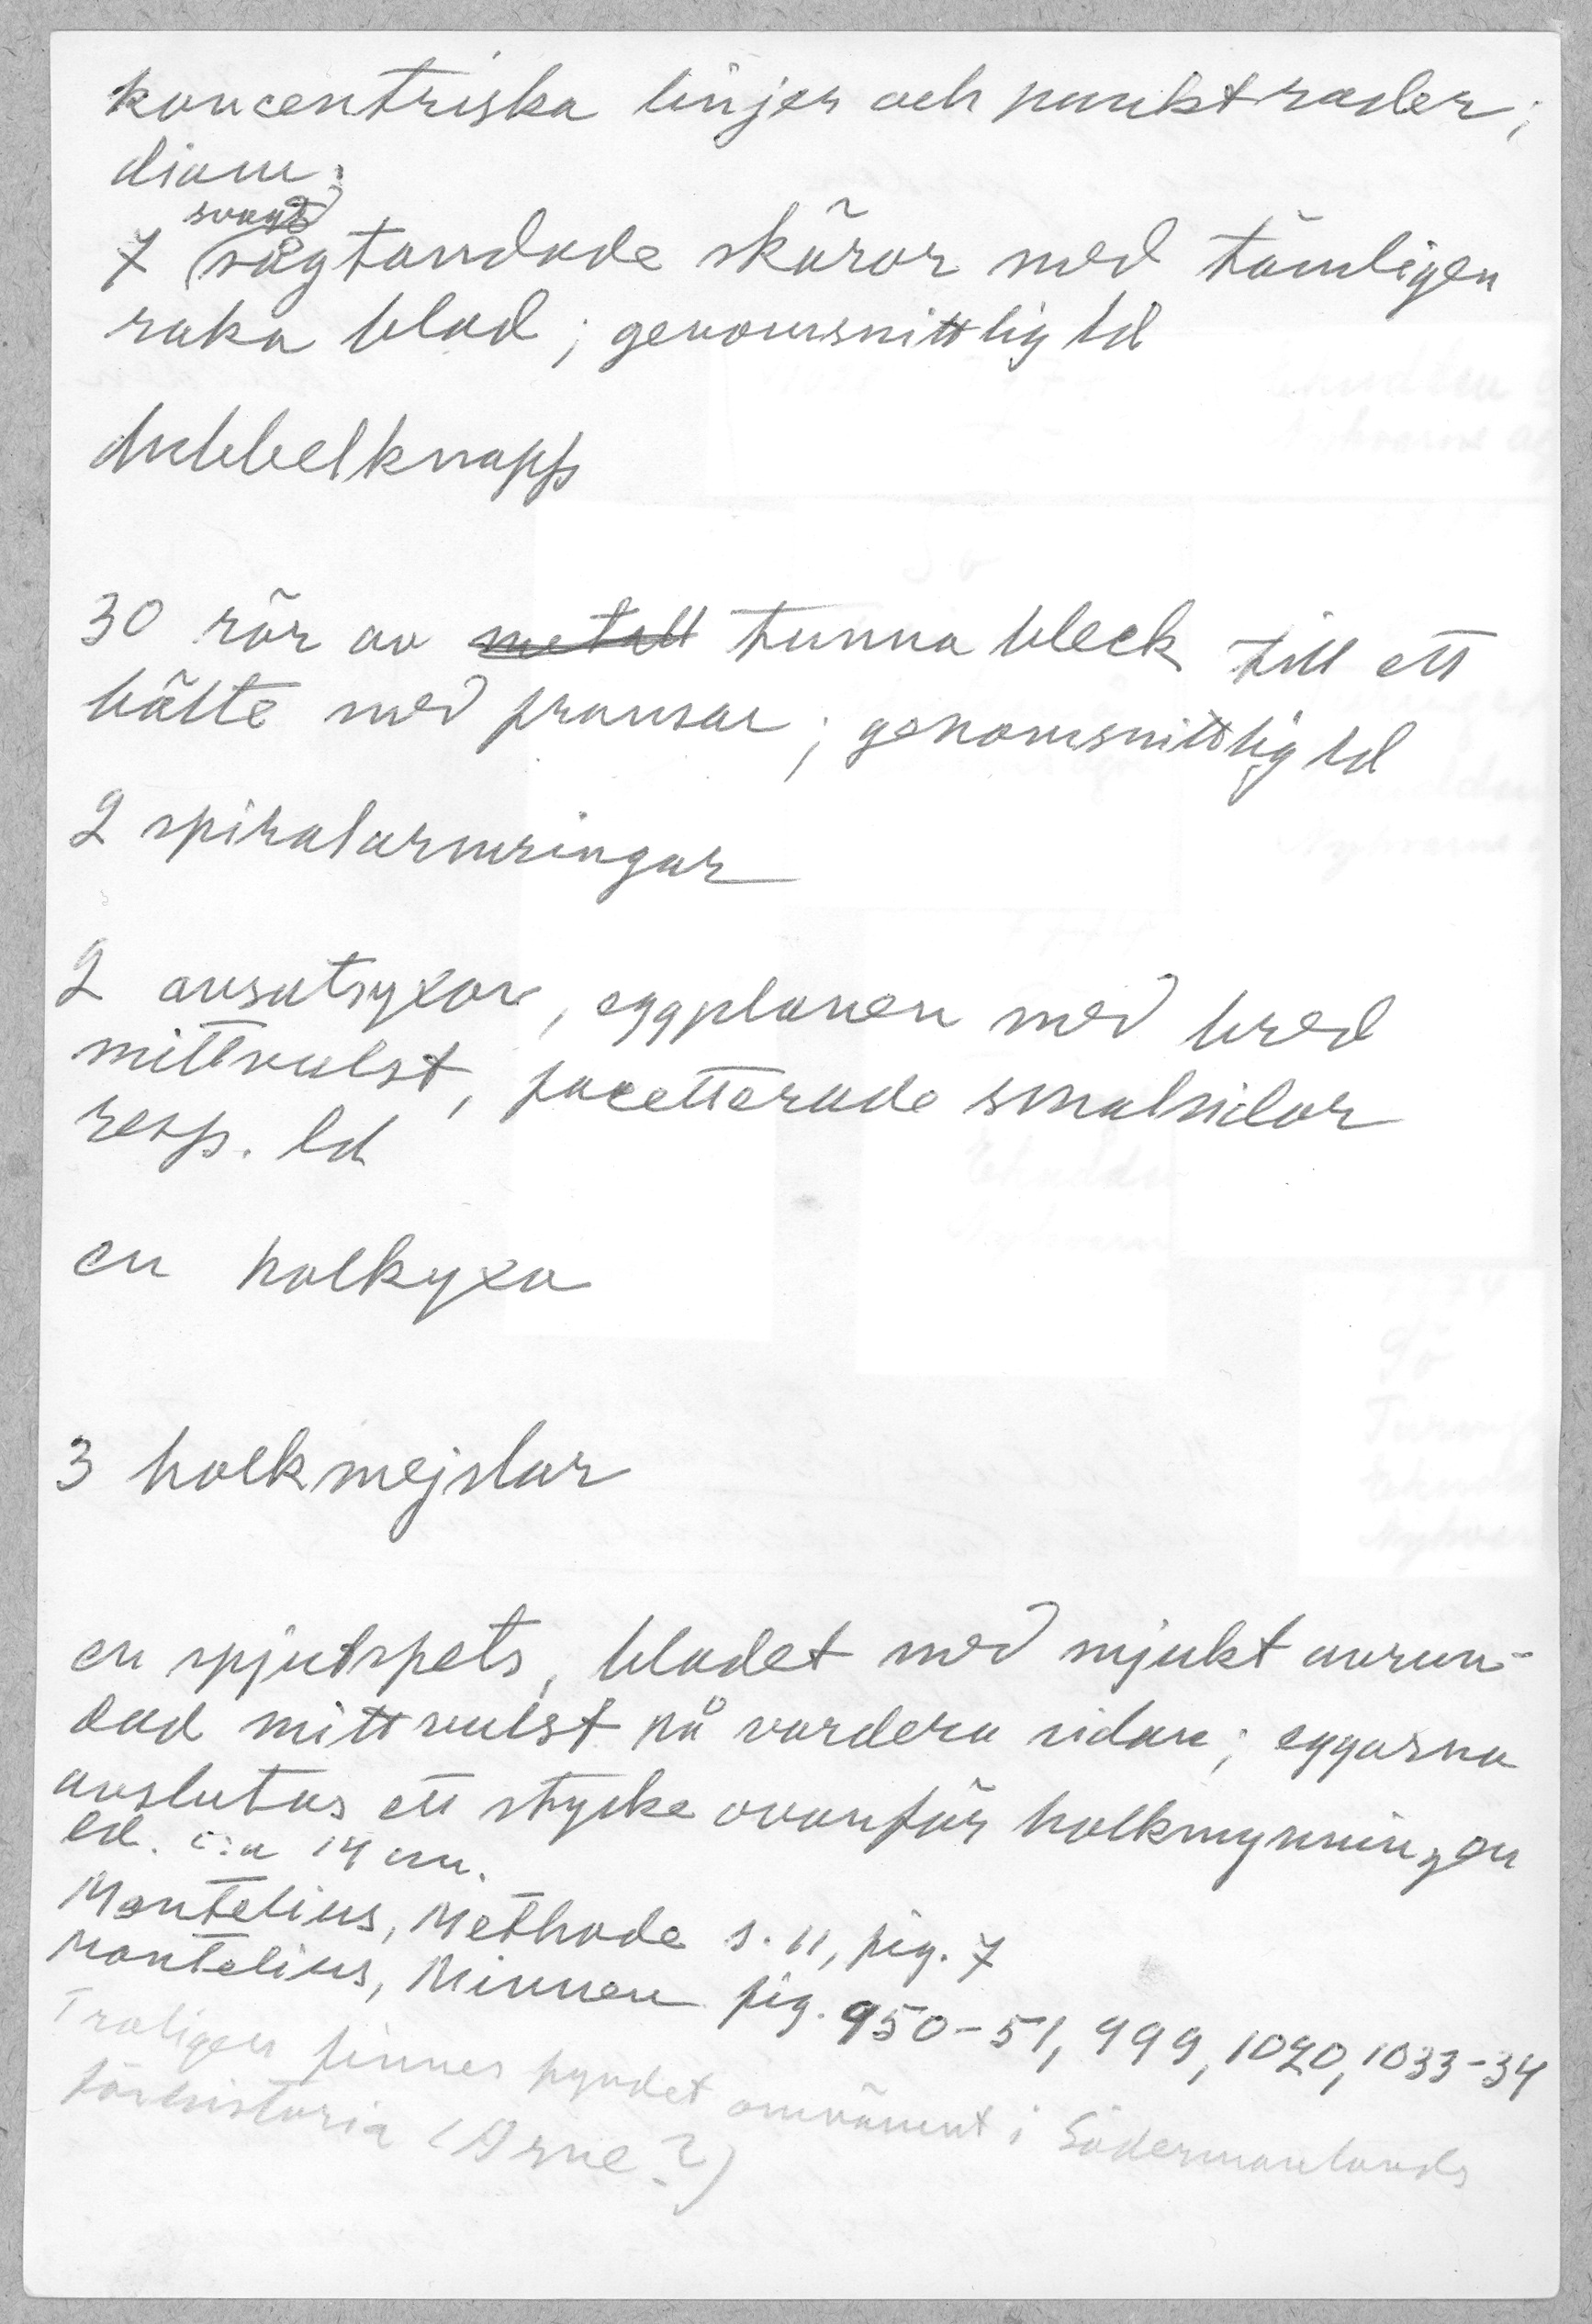 koncentriska linjer och punktrader;
diam:
svagt
7 sågtandade skäror med tämligen
raka blad; genomsnittlig ld
dubbelknapp
30 rör av metall tunna bleck till ett
bälte med fransar; genomsnittlig ld
2 spiralarmringar
2 avsatsyxor, eggplanen med bred
mittvulst, facetterade smalsidor
resp. ld
en holkyxa
3 holkmejslar
en spjutspets, bladet med mjukt avrun-
dad mittvulst på vardera sidan; eggarna
avslutas ett stycke ovanför holkmynningen
ld. c:a 14 cm.
Montelius, Methode s. 11, fig. 7
Montelius, Minnen fig. 950-51, 999, 1020, 1033-34
Troligen finnes fyndet omnämnt i Södermanlands
förhistoria (Arne?)